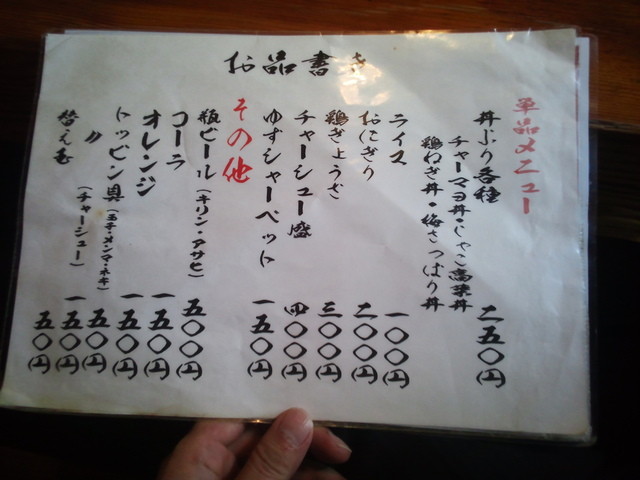 お品書き
単品メニュー
丼ぶり各種 二五〇円
チャーマヨ丼・じゃこ高菜丼
鶏ねぎ丼・梅さっぱり丼
ライス 一〇〇円
おにぎり 二〇〇円
鶏ぎょうざ 三〇〇円
チャーシュー盛 四〇〇円
ゆずシャーベット 一五〇円
その他
瓶ビール(キリン・アサヒ) 五〇〇円
コーラ 一五〇円
オレンジ 一五〇円
トッピン具(玉子・メンマ・ネギ) 五〇円
〃(チャーシュー) 一五〇円
替え玉 五〇円